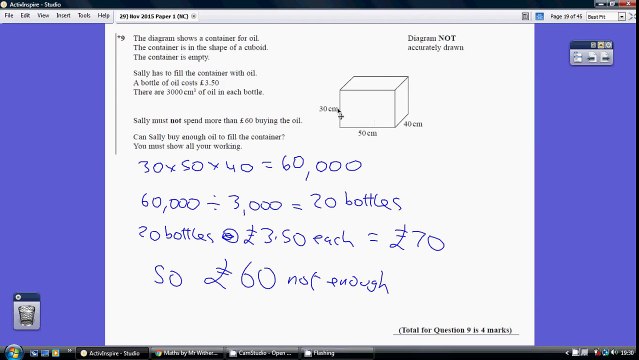 ActivInspire - Studio
29] Nov 2015 Paper 1 (NC)
Page 19 of 45
Best Fit
*9 The diagram shows a container for oil.
The container is in the shape of a cuboid.
The container is empty.
Diagram NOT
accurately drawn
Sally has to fill the container with oil.
A bottle of oil costs £3.50
There are 3000 cm³ of oil in each bottle.
Sally must not spend more than £60 buying the oil.
Can Sally buy enough oil to fill the container?
You must show all your working.
30 cm
40 cm
50 cm
30 × 50 × 40 = 60,000
60,000 ÷ 3,000 = 20 bottles
20 bottles @ £3.50 each = £70
so £60 not enough
(Total for Question 9 is 4 marks)
ActivInspire - Studio
Maths by Mr Wither...
CamStudio - Open ...
Flashing
19:30